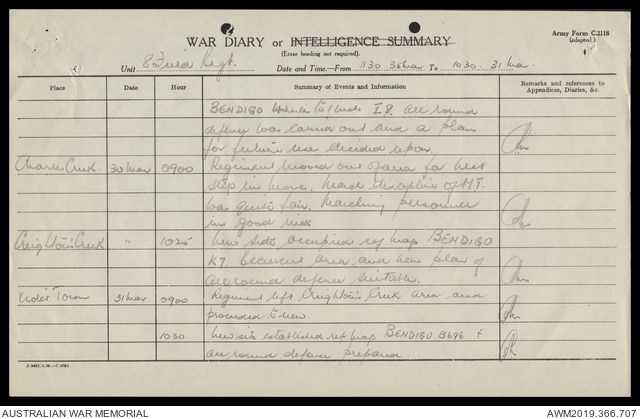 WAR DIARY or INTELLIGENCE SUMMARY
(Erase heading not required).
Army Form C.2118
(adapted.)
Unit 8 Field Regt. Date and Time.—From 1130 30 Mar To 1030 31 Mar.
Place Date Hour Summary of Events and Information Remarks and references to Appendices, Diaries, &c.
BENDIGO to 1 I 8. All round
defence was carried out and a plan
for future use decided upon.
Charles Creek. 30 Mar 0900 Regiment moved out of area for next
step in move. March discipline of MT.
was quite fair. Marching personnel
in good nick
Creighton's Creek " 1025 New site occupied ref map BENDIGO
K7 Excellent area and new plan of
all round defence suitable.
Violet Town 31 Mar 0900 Regiment left Creighton's Creek area and
proceeded to new.
1030 New site established ref map BENDIGO B696 +
all round defence prepared
AUSTRALIAN WAR MEMORIAL
AWM2019.366.707